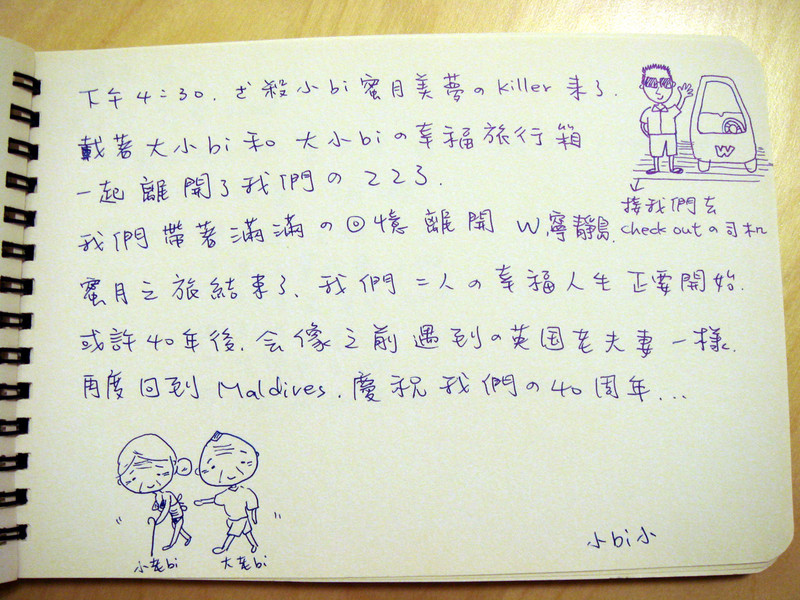 下午4:30. ㄜ殺小bi蜜月美夢の killer 來了.
載著大小bi和大小biの幸福旅行箱
一起離開了我們の 223.
我們帶著滿滿の回憶離開 W,寧靜島.
蜜月之旅結束了、我們二人の幸福人生正要開始.
或許40年後.会像之前遇到の英国老夫妻一樣.
再度回到 Maldives.慶祝我們の40周年...
W
接我們去
check outの司机
小老bi
大老bi
小bi小